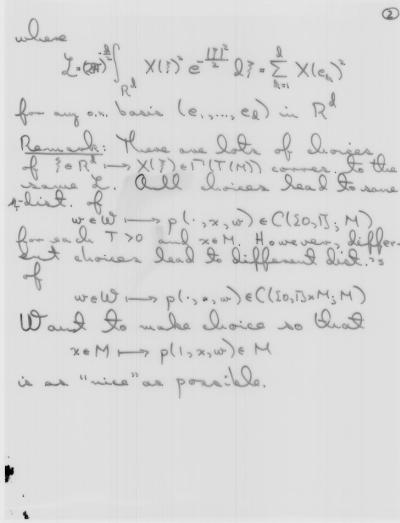 ②
where
ℒ = (2π)^{-d/2} ∫_{R^d} X(ξ)² e^{-|ξ|²/2} dξ = Σ_{k=1}^{d} X(e_k)²
for any o.n. basis (e₁,...,e_d) in R^d
Remark: There are lots of choices
of ξ∈R^d ↦ X(ξ)∈Γ(T(M)) corres. to the
same ℒ. All choices lead to same
dist. of
w∈W ↦ p(·,x,w)∈C([0,T]; M)
for each T>0 and x∈M. However, differ-
ent choices lead to different dist.'s
of
w∈W ↦ p(·,*,w)∈C([0,T]×M; M)
Want to make choice so that
x∈M ↦ p(1,x,w)∈M
is as "nice" as possible.